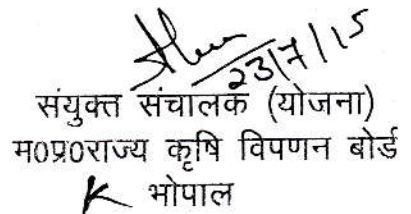 23/7/15
संयुक्त संचालक (योजना)
म0प्र0राज्य कृषि विपणन बोर्ड
भोपाल